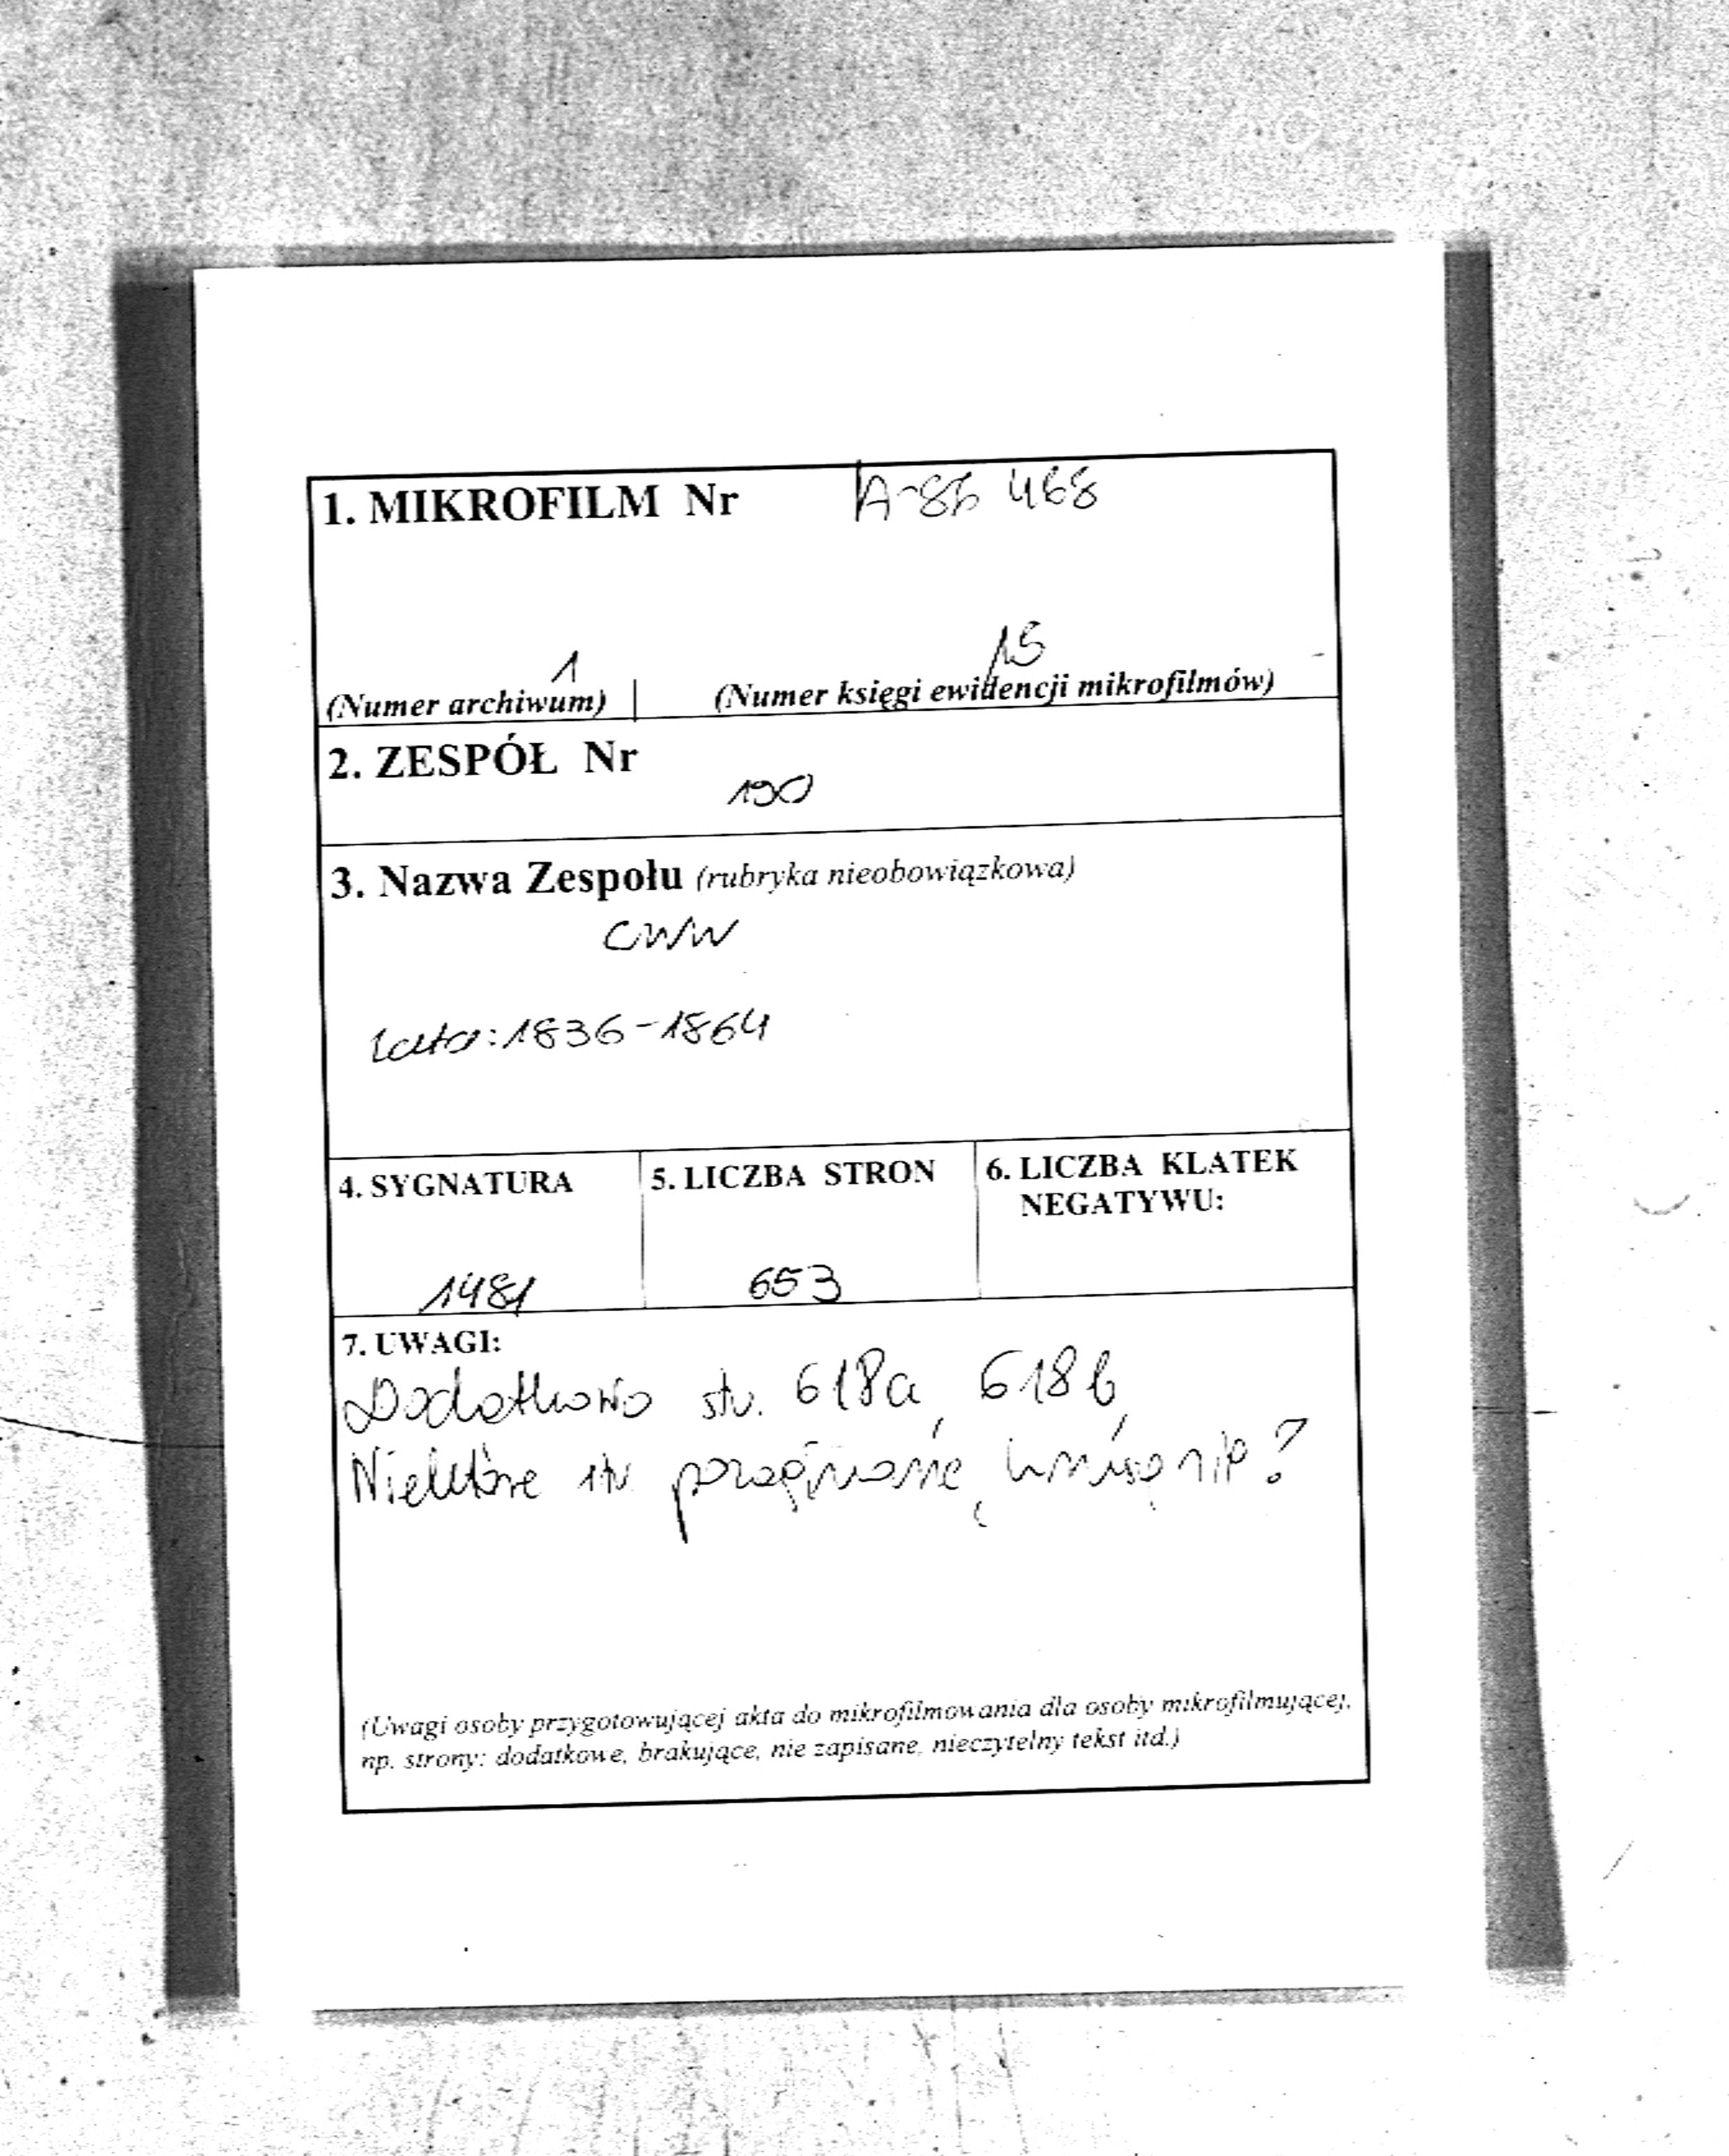 1. MIKROFILM Nr A-86 468
1 15
(Numer archiwum) (Numer księgi ewidencji mikrofilmów)
2. ZESPÓŁ Nr
190
3. Nazwa Zespołu (rubryka nieobowiązkowa)
CWW
Lata: 1836-1864
4. SYGNATURA 5. LICZBA STRON 6. LICZBA KLATEK
NEGATYWU:
1481 653
7. UWAGI:
Dodatkowo str. 618a, 618b,
Niektóre str.
(Uwagi osoby przygotowującej akta do mikrofilmowania dla osoby mikrofilmującej,
np. strony: dodatkowe, brakujące, nie zapisane, nieczytelny tekst itd.)